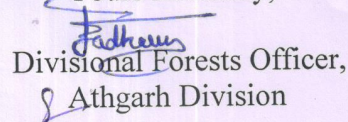 Divisional Forests Officer,
Athgarh Division